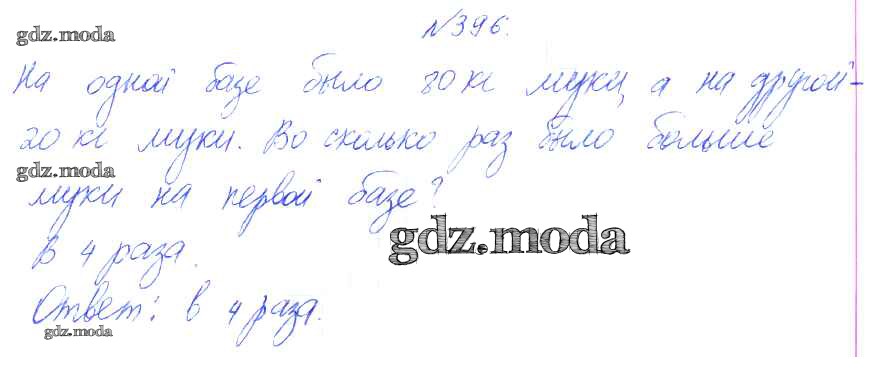 №396.
gdz.moda
На одной базе было 80 кг муки, а на другой -
20 кг муки. Во сколько раз было больше
gdz.moda
муки на первой базе?
gdz.moda
В 4 раза.
Ответ: в 4 раза.
gdz.moda